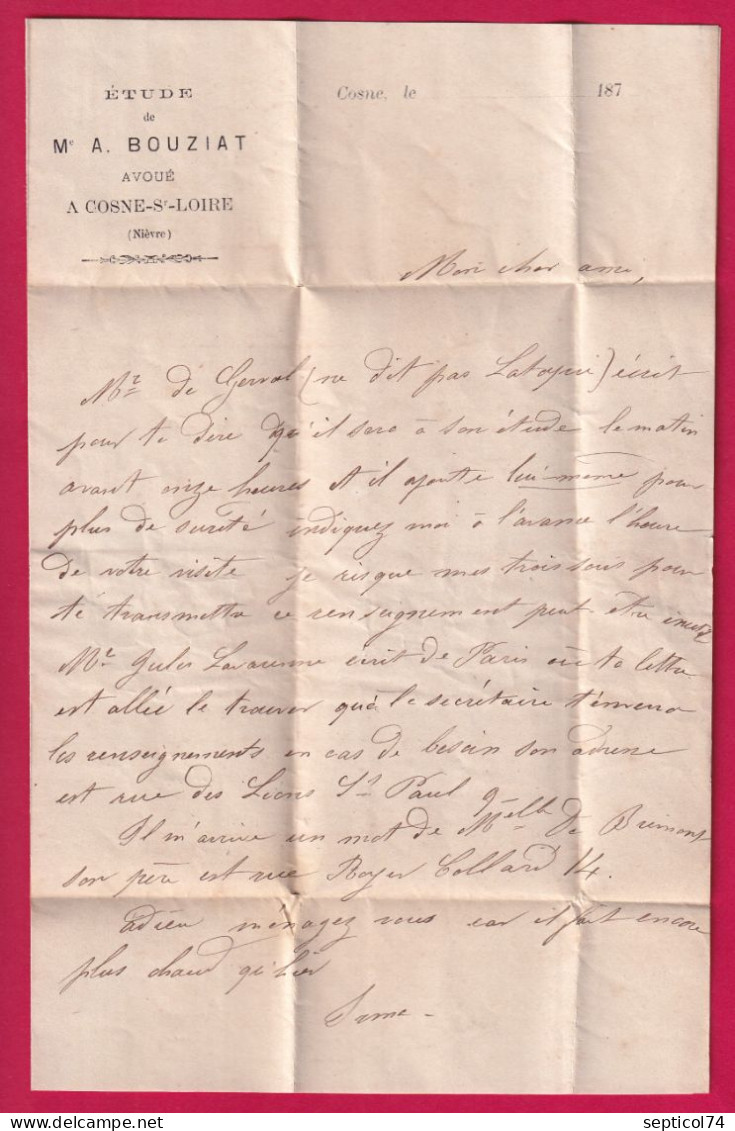 ÉTUDE
de
Me A. BOUZIAT
AVOUÉ
A COSNE-Sr-LOIRE
(Nièvre)
Cosne, le 187
Mon cher ami,
Mr de Gerval (ne dit pas) écrit
pour te dire qu'il sera à son étude le matin
avant onze heures et il ajoute lui-même pour
plus de sureté indiquez moi à l'avance l'heure
de votre visite je risque mes trois sous pour
te transmettre ce renseignement peut-être
Mr Jules écrit de Paris où ta lettre
est allée le trouver que le secrétaire
les renseignements en cas de besoin son adresse
est rue des Lions St Paul 9
Il m'arrive un mot de Melle de Brimont
son père est rue Royer Collard 14.
adieu ménagez vous car il fait encore
plus chaud qu'hier
septicol74